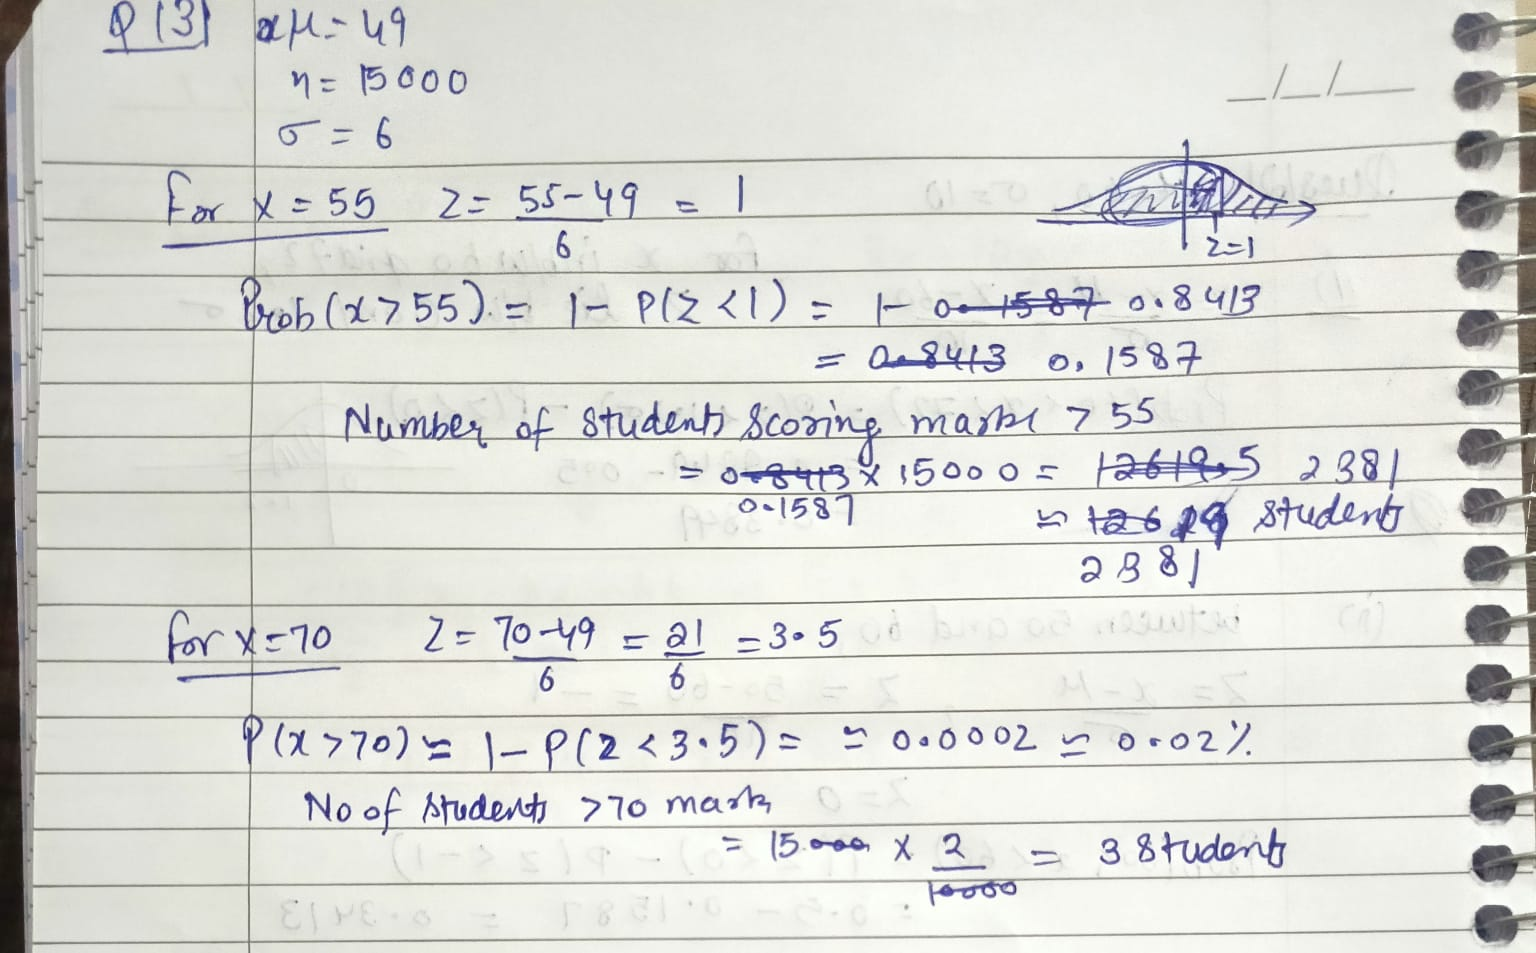 Q 13) μ = 49
n = 15000
σ = 6
_/_/_
For x = 55 Z = 55-49 / 6 = 1
z=1
Prob (x > 55). = 1 - P(Z < 1) = 1 - 0.1587 0.8413
= 0.8413 0.1587
Number of students scoring marks > 55
= 0.8413 x 15000 = 12619.5 2381
0.1587
≈ 12619 students
2381
for x = 70 Z = 70-49 / 6 = 21 / 6 = 3.5
P(x > 70) ≈ 1 - P(z < 3.5) = ≈ 0.0002 ≈ 0.02%
No of students > 70 marks
= 15000 x 2 / 10000 = 3 students